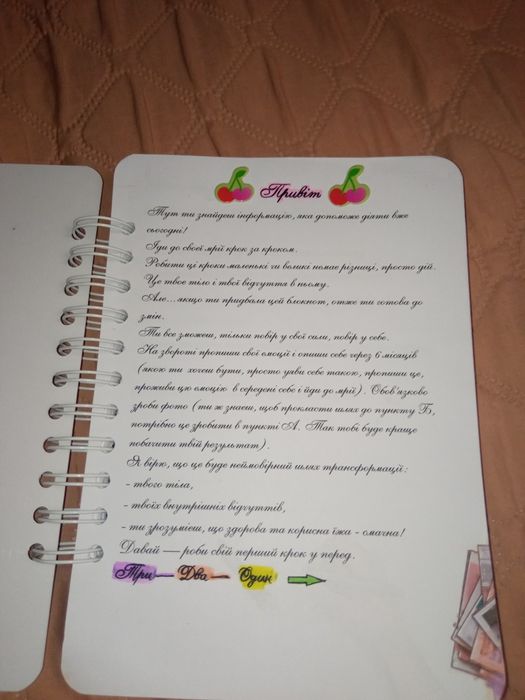 Привіт
Тут ти знайдеш інформацію, яка допоможе діяти вже
сьогодні!
Іди до своєї мрії крок за кроком.
Робити ці кроки маленькі чи великі немає різниці, просто дій.
Це твоє тіло і твої відчуття в ньому.
Але...якщо ти придбала цей блокнот, отже ти готова до
змін.
Ти все зможеш, тільки повір у свої сили, повір у себе.
На звороті пропиши свої емоції і опиши себе через 6 місяців
(якою ти хочеш бути, просто уяви себе такою, пропиши це,
проживи цю емоцію в середені себе і йди до мрії). Обов'язково
зроби фото (ти ж знаєш, щоб прокласти шлях до пункту Б,
потрібно це зробити в пункті А. Так тобі буде краще
побачити твій результат).
Я вірю, що це буде неймовірний шлях трансформації:
- твого тіла,
- твоїх внутрішніх відчуттів,
- ти зрозумієш, що здорова та корисна їжа - смачна!
Давай — роби свій перший крок у перед.
Три — Два — Один